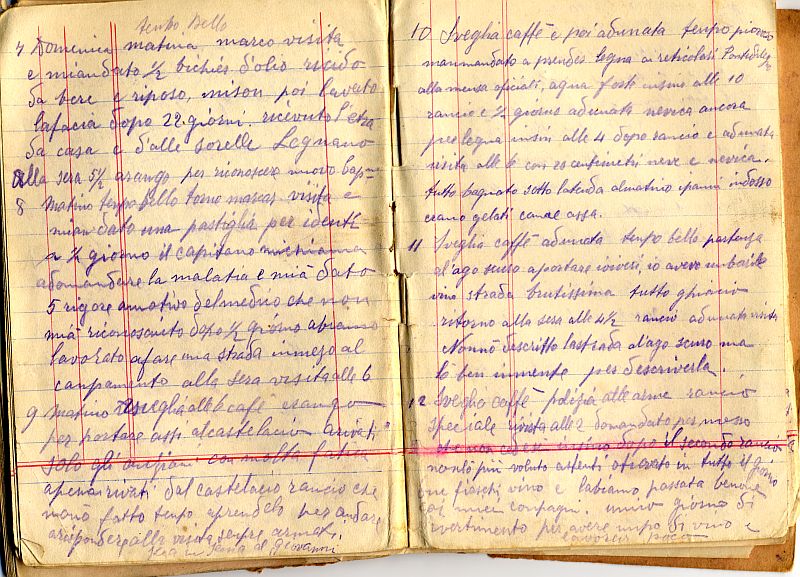 tenpo Bello
7 Domenica matina marco visita
e miandato 1/2 bichier d'olio ricido
da bere e riposo, mison poi lavato
lafacia dopo 22 giorni. ricevuto
da casa e dalle sorelle Legnano
alla sera 5 1/2 per riconoscere nuovo
8 Matino tenpo bello torno marcar visita e
mian dato una pastiglia per identi
a 1/2 giorno il capitano michiama
adomandare la malatia e mià dato
5 rigore amotivo delmedico che non
mià riconosciuto dopo 1/2 giorno
lavorato afare una strada inmezo al
canpamento alla sera visita alle 6
9 Matino sveglia alle 6 café
per portare assi alcastelacio arivati
solo gli anziani con molta fatica
apena rivati dal castelacio rancio che
nonò fatto tenpo aprenderlo per andare
arispondere alla visita senpre armati.
10 Sveglia caffè e poi adunata tenpo piovoso
manmandato a prender legna ai reticolati
alla mensa oficiali, aqua forte insino alle 10
rancio e 1/2 giorno adunata nevica ancora
per legna insin alle 4 dopo rancio e adunata
visita alle 6 con 20 centimetri neve e nevica.
tutto bagnato sotto latenda almatino ipanni indosso
erano gelati come assa.
11 Sveglia caffè adunata tenpo bello partenza
d'ago scuro aportare iviveri, io avevo un barile
vino strada brutissima tutto ghiacio
ritorno alla sera alle 4 1/2 rancio adunata visita
Nonnò descritto lastrada d'ago scuro ma
lò ben inmente per descriverla.
12 Sveglia caffè pulizia alle arme rancio
speciale visita alle 2 domandato permesso
insino dopo il secondo rancio
nonlò piu voluto otrovato in tutto il
fiaschi vino e labiamo passata benone
miei conpagni. unico giorno di
divertimento per avere unpo di vino e
lavorar poco